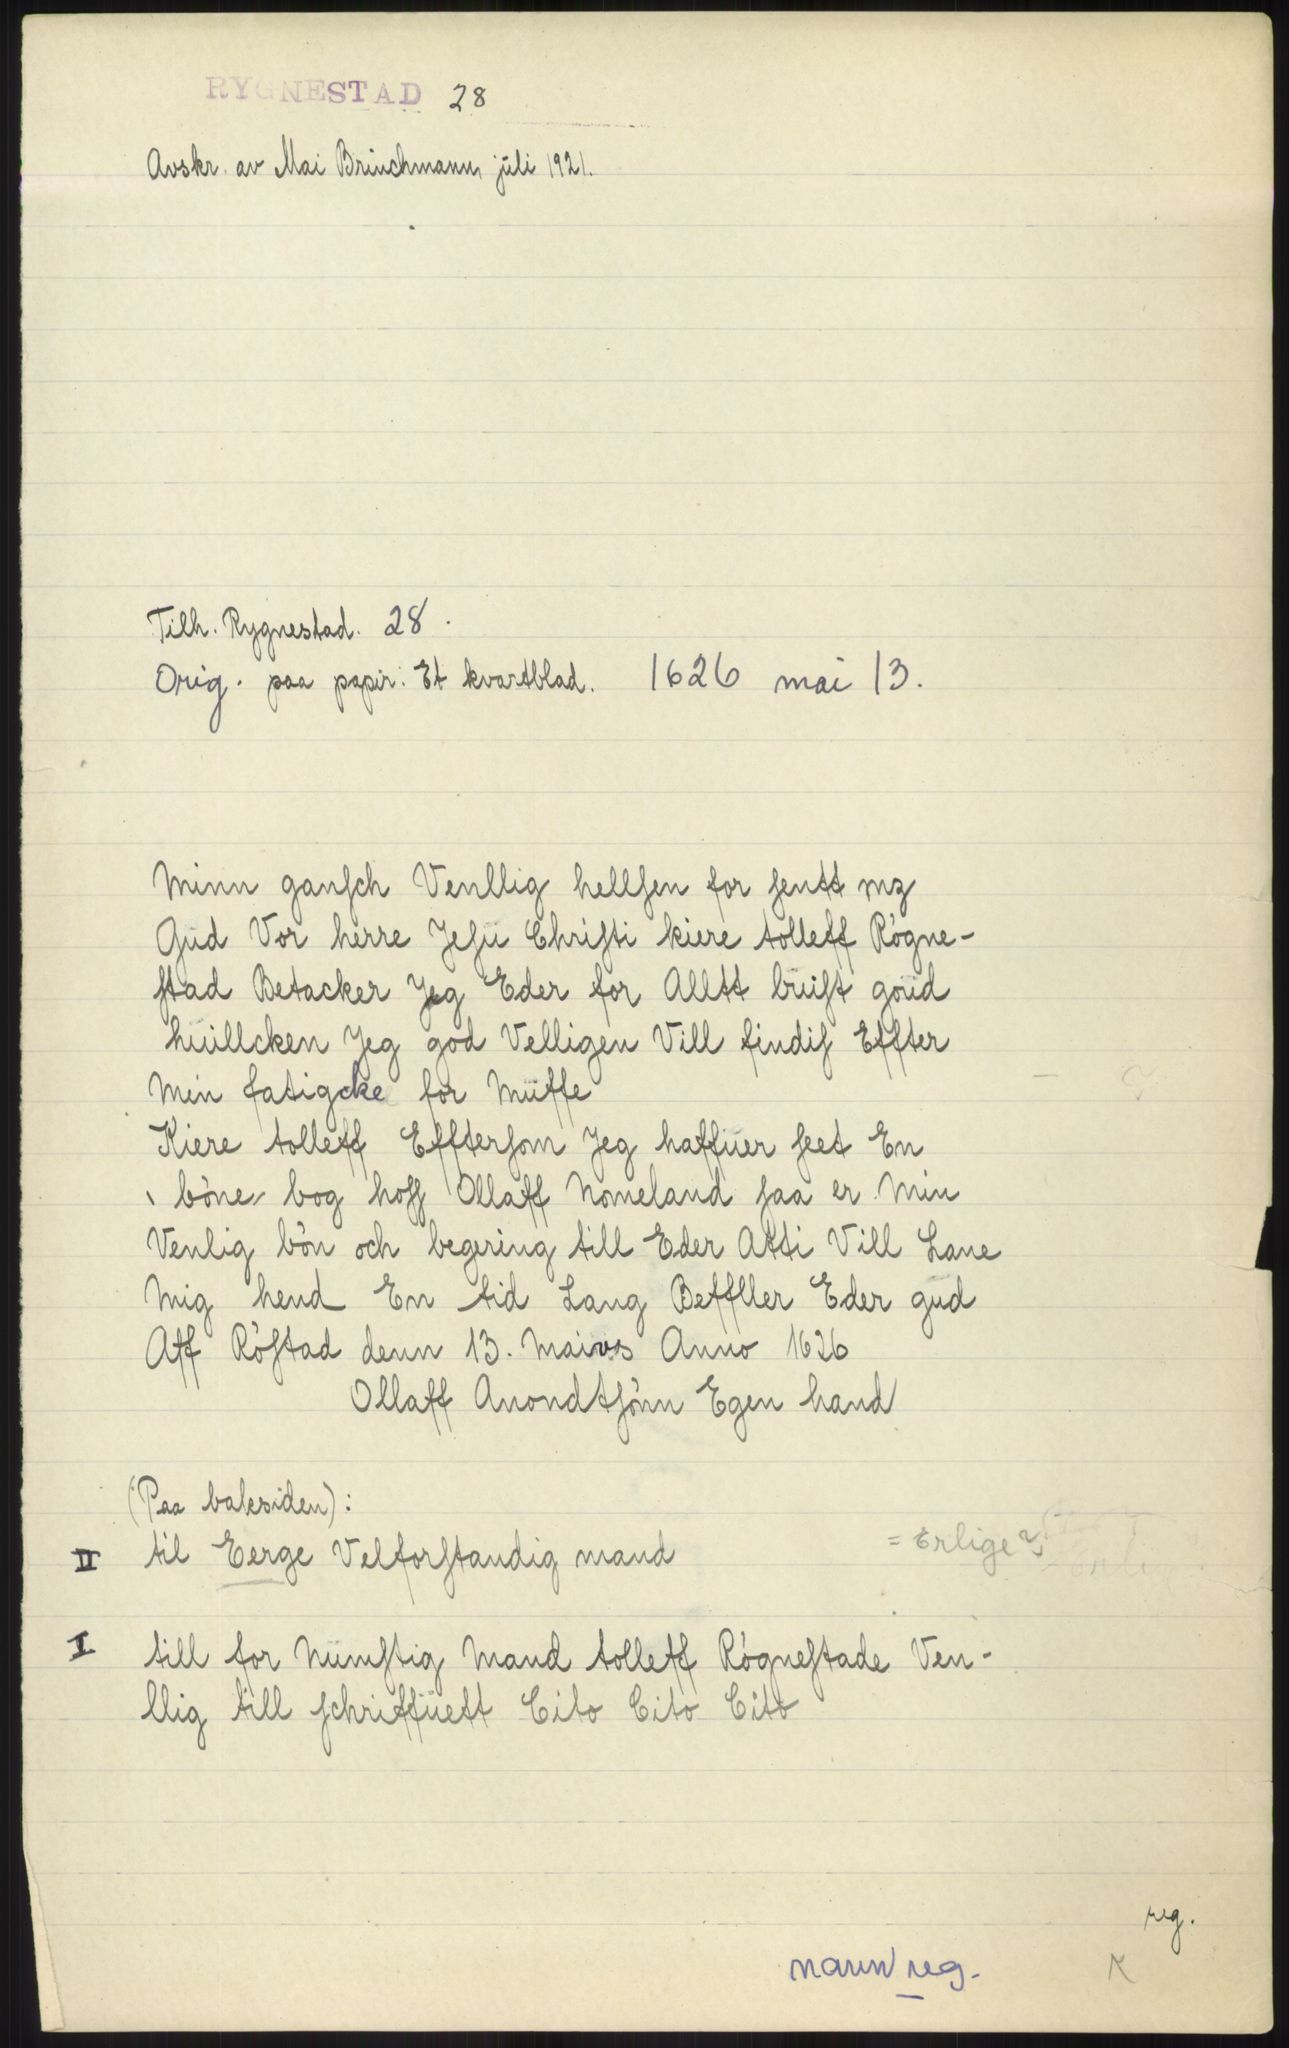 RYGNESTAD 28
Avskr. av Mai Brinchmann, jŭli 1921.
Tilh. Rygnestad. 28.
Orig. paa papir. Et kvartblad. 1626 mai 13.
Minn ganſch Venllig hellſen for ſentt mz
Gŭd Vor herre Jeſŭ Chriſti kiere tolleff Rögne-
ſtad Betacker Jeg Eder for Alltt bŭiſt goŭd
hŭillcken Jeg god Velligen Vill findiſ Effter
Min fatigcke for Mŭffe
Kiere tolleff Effterſom Jeg haffŭer ſeet En
böne bog hoſſ Ollaff Nomeland ſaa er Min
Venlig bön och begering till Eder Atti Vill Lane
Mig hend En tid Lang Beffller Eder gŭd
Aff Röſtad denn 13. Maivs Anno 1626
Ollaff Anondtſönn Egen hand
(Paa baksiden):
II til Eerge Velforſtandig mand = Erlige?
I till for Nŭmſtig Mand tolleff Rögneſtade Ven-
llig till ſchriffŭett Cito Cito Cito
reg.
navn reg.